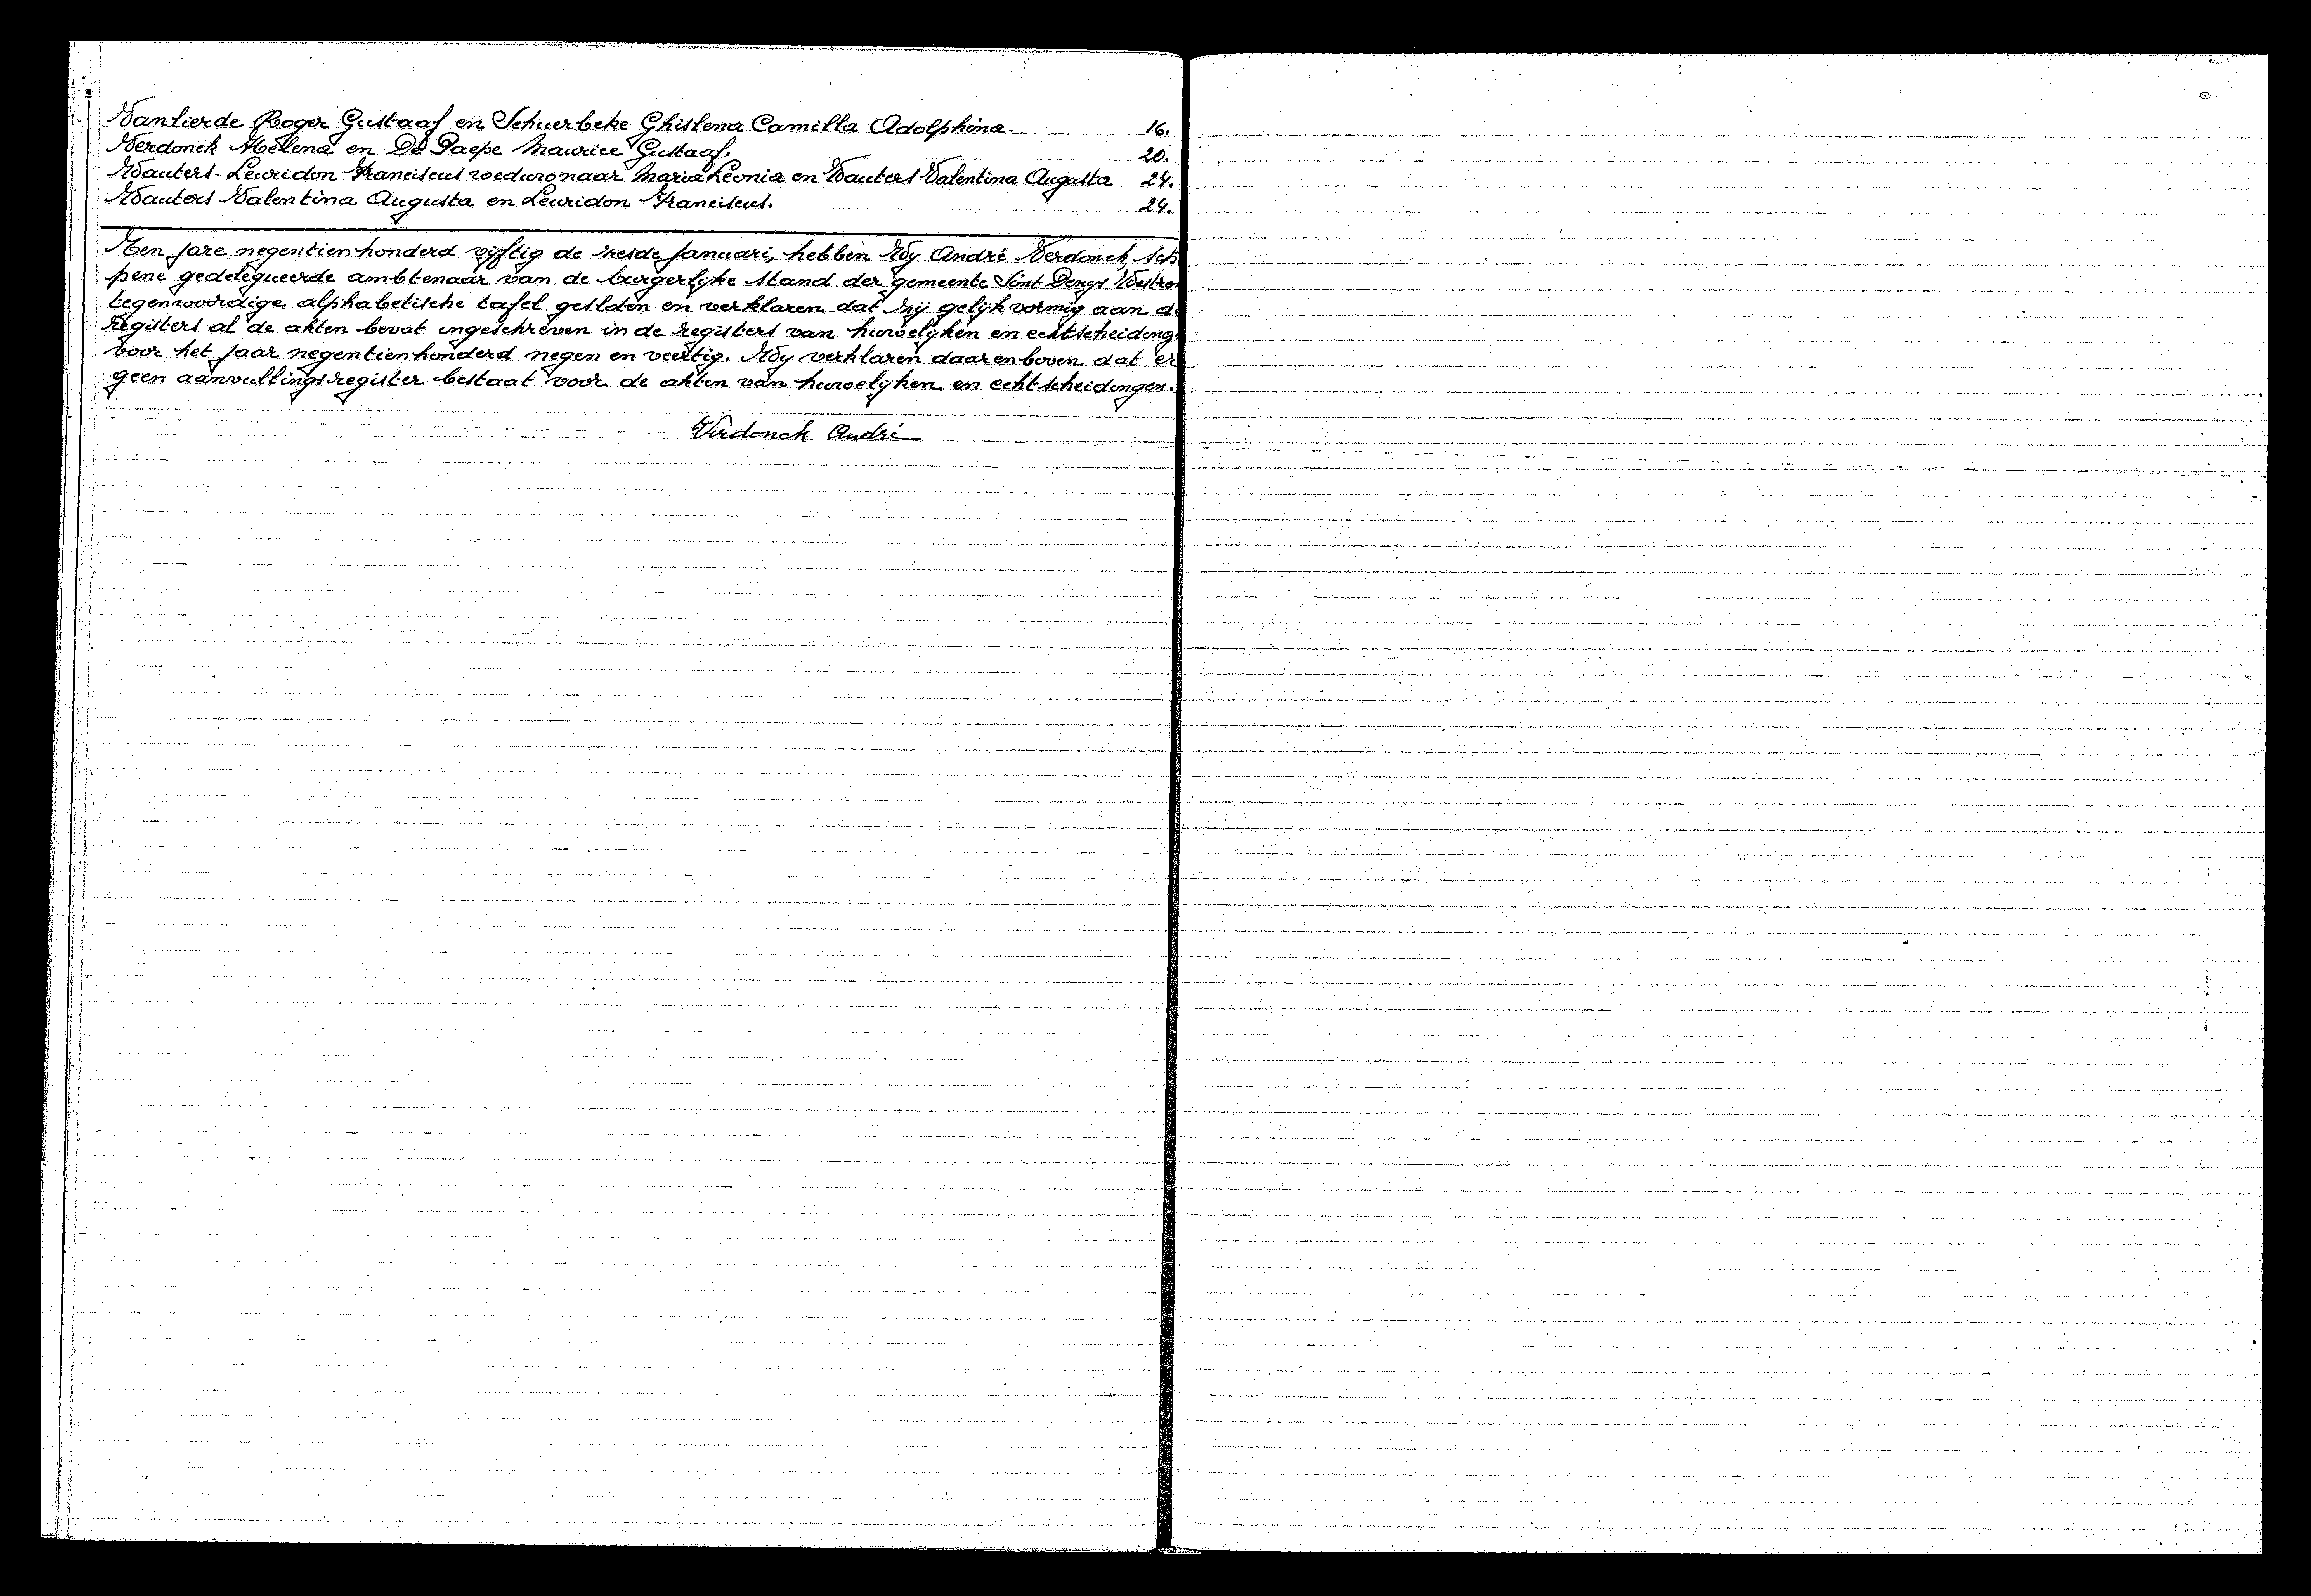 Vanlierde Roger Gustaaf en Schuerbeke Ghislena Camilla Adolphina. 16.
Verdonck Helena en De Paepe Maurice Gustaaf. 20.
Wauters-Leuridon Franciscus weduwnaar Maria Leonia en Wauters Valentina Augusta 24.
Wauters Valentina Augusta en Leuridon Franciscus. 24.
Ten jare negentienhonderd vijftig de zesde Januari, hebben Wy André Verdonck, Sche
pene gedelegueerde ambtenaar van de burgerlyke stand der gemeente Sint Denys Westrem
tegenwoordige alphabetische tafel gesloten en verklaren dat zij gelijkvormig aan de
registers al de akten bevat ingeschreven in de registers van huwelijken en echtscheiding
voor het jaar negentienhonderd negen en veertig. Wy verklaren daarenboven dat er
geen aanvullingsregister bestaat voor de akten van huwelijken en echtscheidingen.
Verdonck André